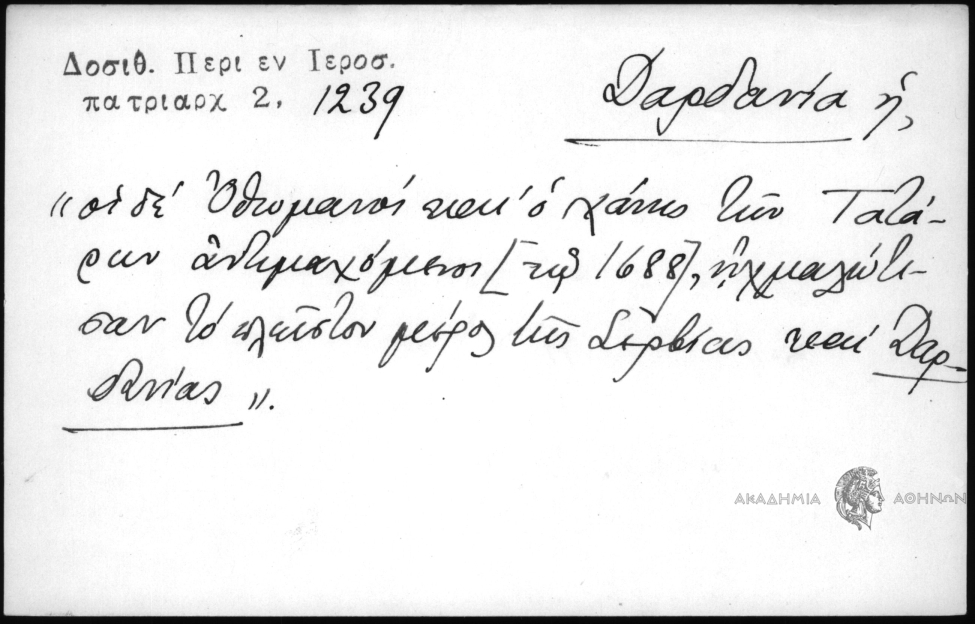 Δοσιθ. Περι εν Ιεροσ.
πατριαρχ 2, 1239
Δαρδανία ἡ,
«οἱ δέ Ὀθωμανοί καί ὁ χάνης τῶν Τατά-
ρων ἀντιμαχόμενοι [τῷ 1688], ἠχμαλώτι-
σαν τό πλεῖστον μέρος τῆς Σερβίας καί Δαρ-
δανίας».
ΑΚΑΔΗΜΙΑ ΑΘΗΝΩΝ